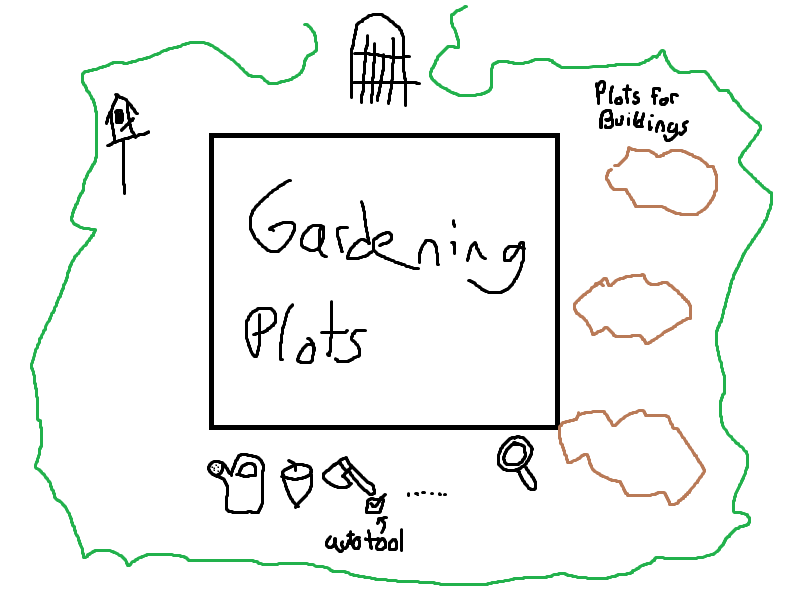 Plots for
Buildings
Gardening
Plots
......
auto tool